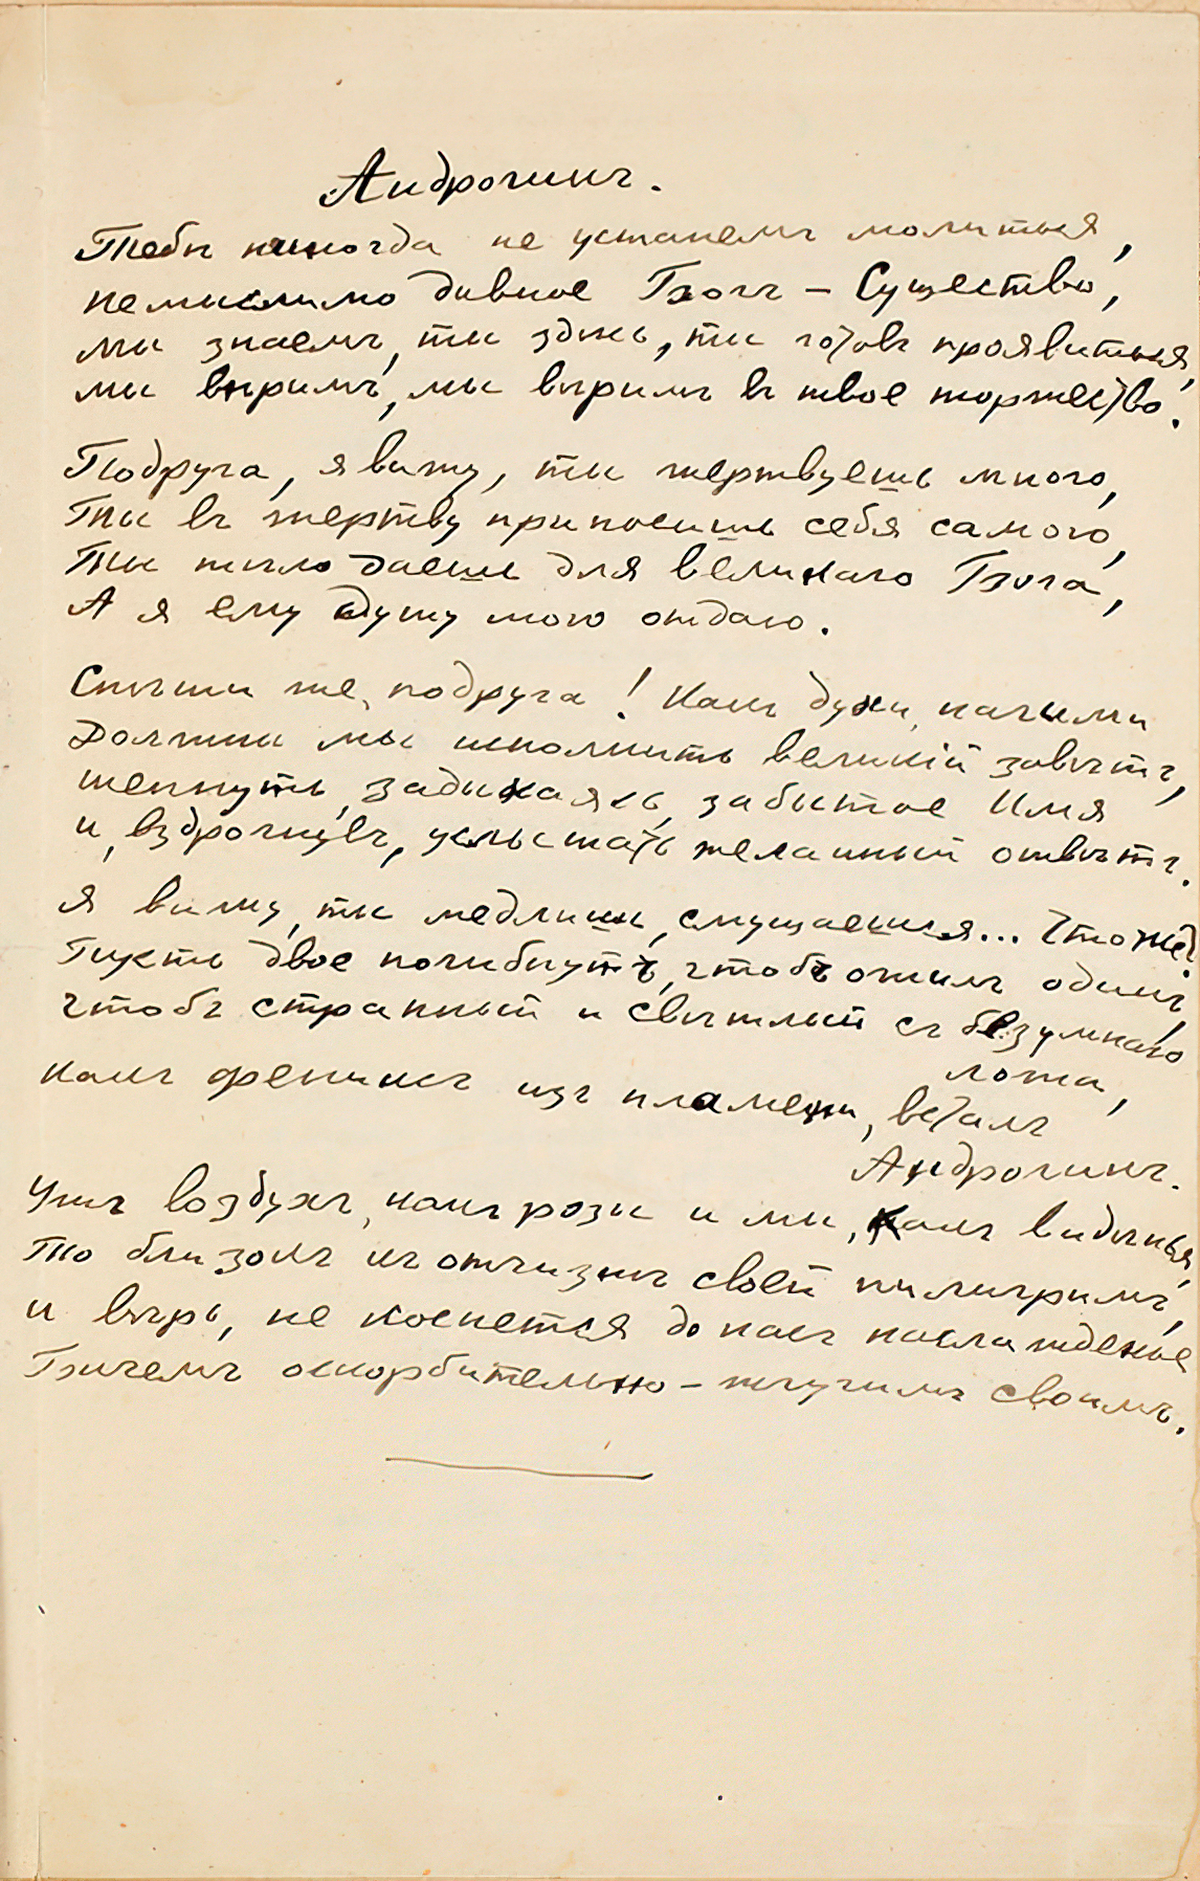 Андрогинъ.
Тебѣ никогда не устанемъ молиться,
немыслимо дивное Богъ – Существо,
мы знаемъ, ты здѣсь, ты готовъ проявиться,
мы вѣримъ, мы вѣримъ въ твое торжество.
Подруга, я вижу, ты жертвуешь много,
Ты въ жертву приносишь себя самого,
Ты тѣло даешь для великаго Бога,
А я ему душу мою отдаю.
Спѣши же, подруга! Какъ духи, нагими
Должны мы исполнить великій завѣтъ,
шепнуть, задыхаясь, забытое Имя
и, вздрогнувъ, услыстать желанный отвѣтъ.
Я вижу, ты медлишь, смущаешься... Что же?
Пусть двое погибнутъ, чтобъ ожилъ одинъ,
чтобъ странный и свѣтлый съ безумнаго
ложа,
какъ фениксъ изъ пламени, всталъ
Андрогинъ.
Ужъ воздухъ, какъ розы и мы, какъ видѣнья,
То близокъ къ отчизнѣ своей пилигримъ,
и вѣрь, не коснется до насъ наслажденье
Бичемъ оскорбительно – жгучимъ своимъ.